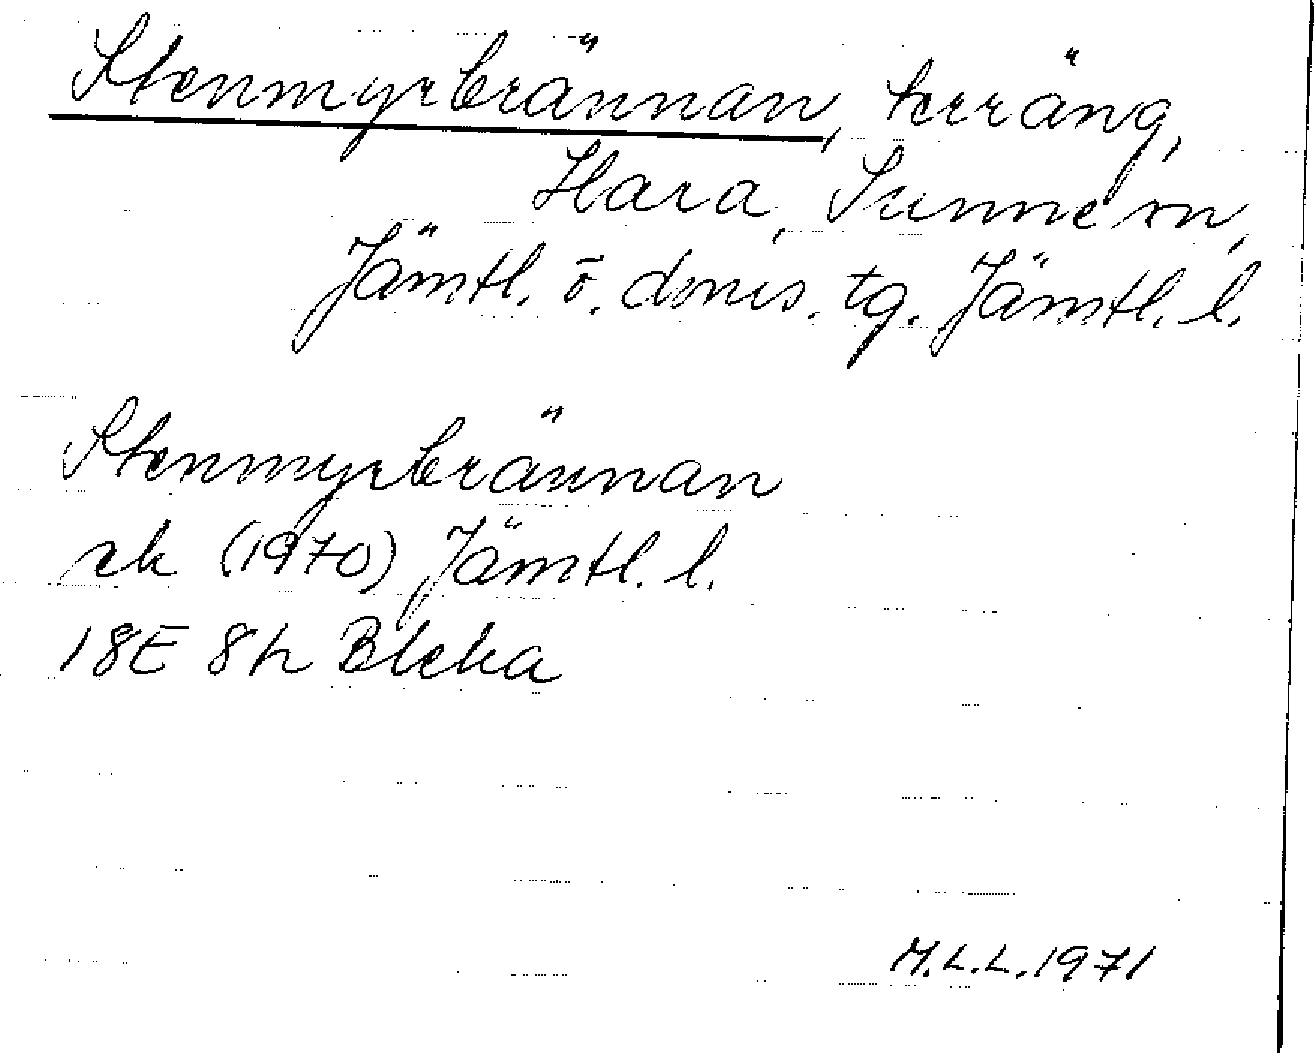 Stenmyrbrännan, terräng,
Hara, Sunne sn,
Jämtl. ö. doms. tg. Jämtl. l.
Stenmyrbrännan
ek (1970) Jämtl. l.
18E 8h Bleka
M.L.L. 1971